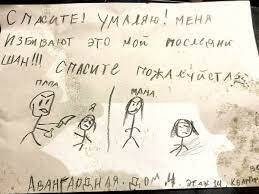 Спасите! Умаляю! Меня
избивают это мой последни
шин!!!
Спасите пожалуйста.
папа
мама.
Авангардная. дом 4. этаж 14. кварти